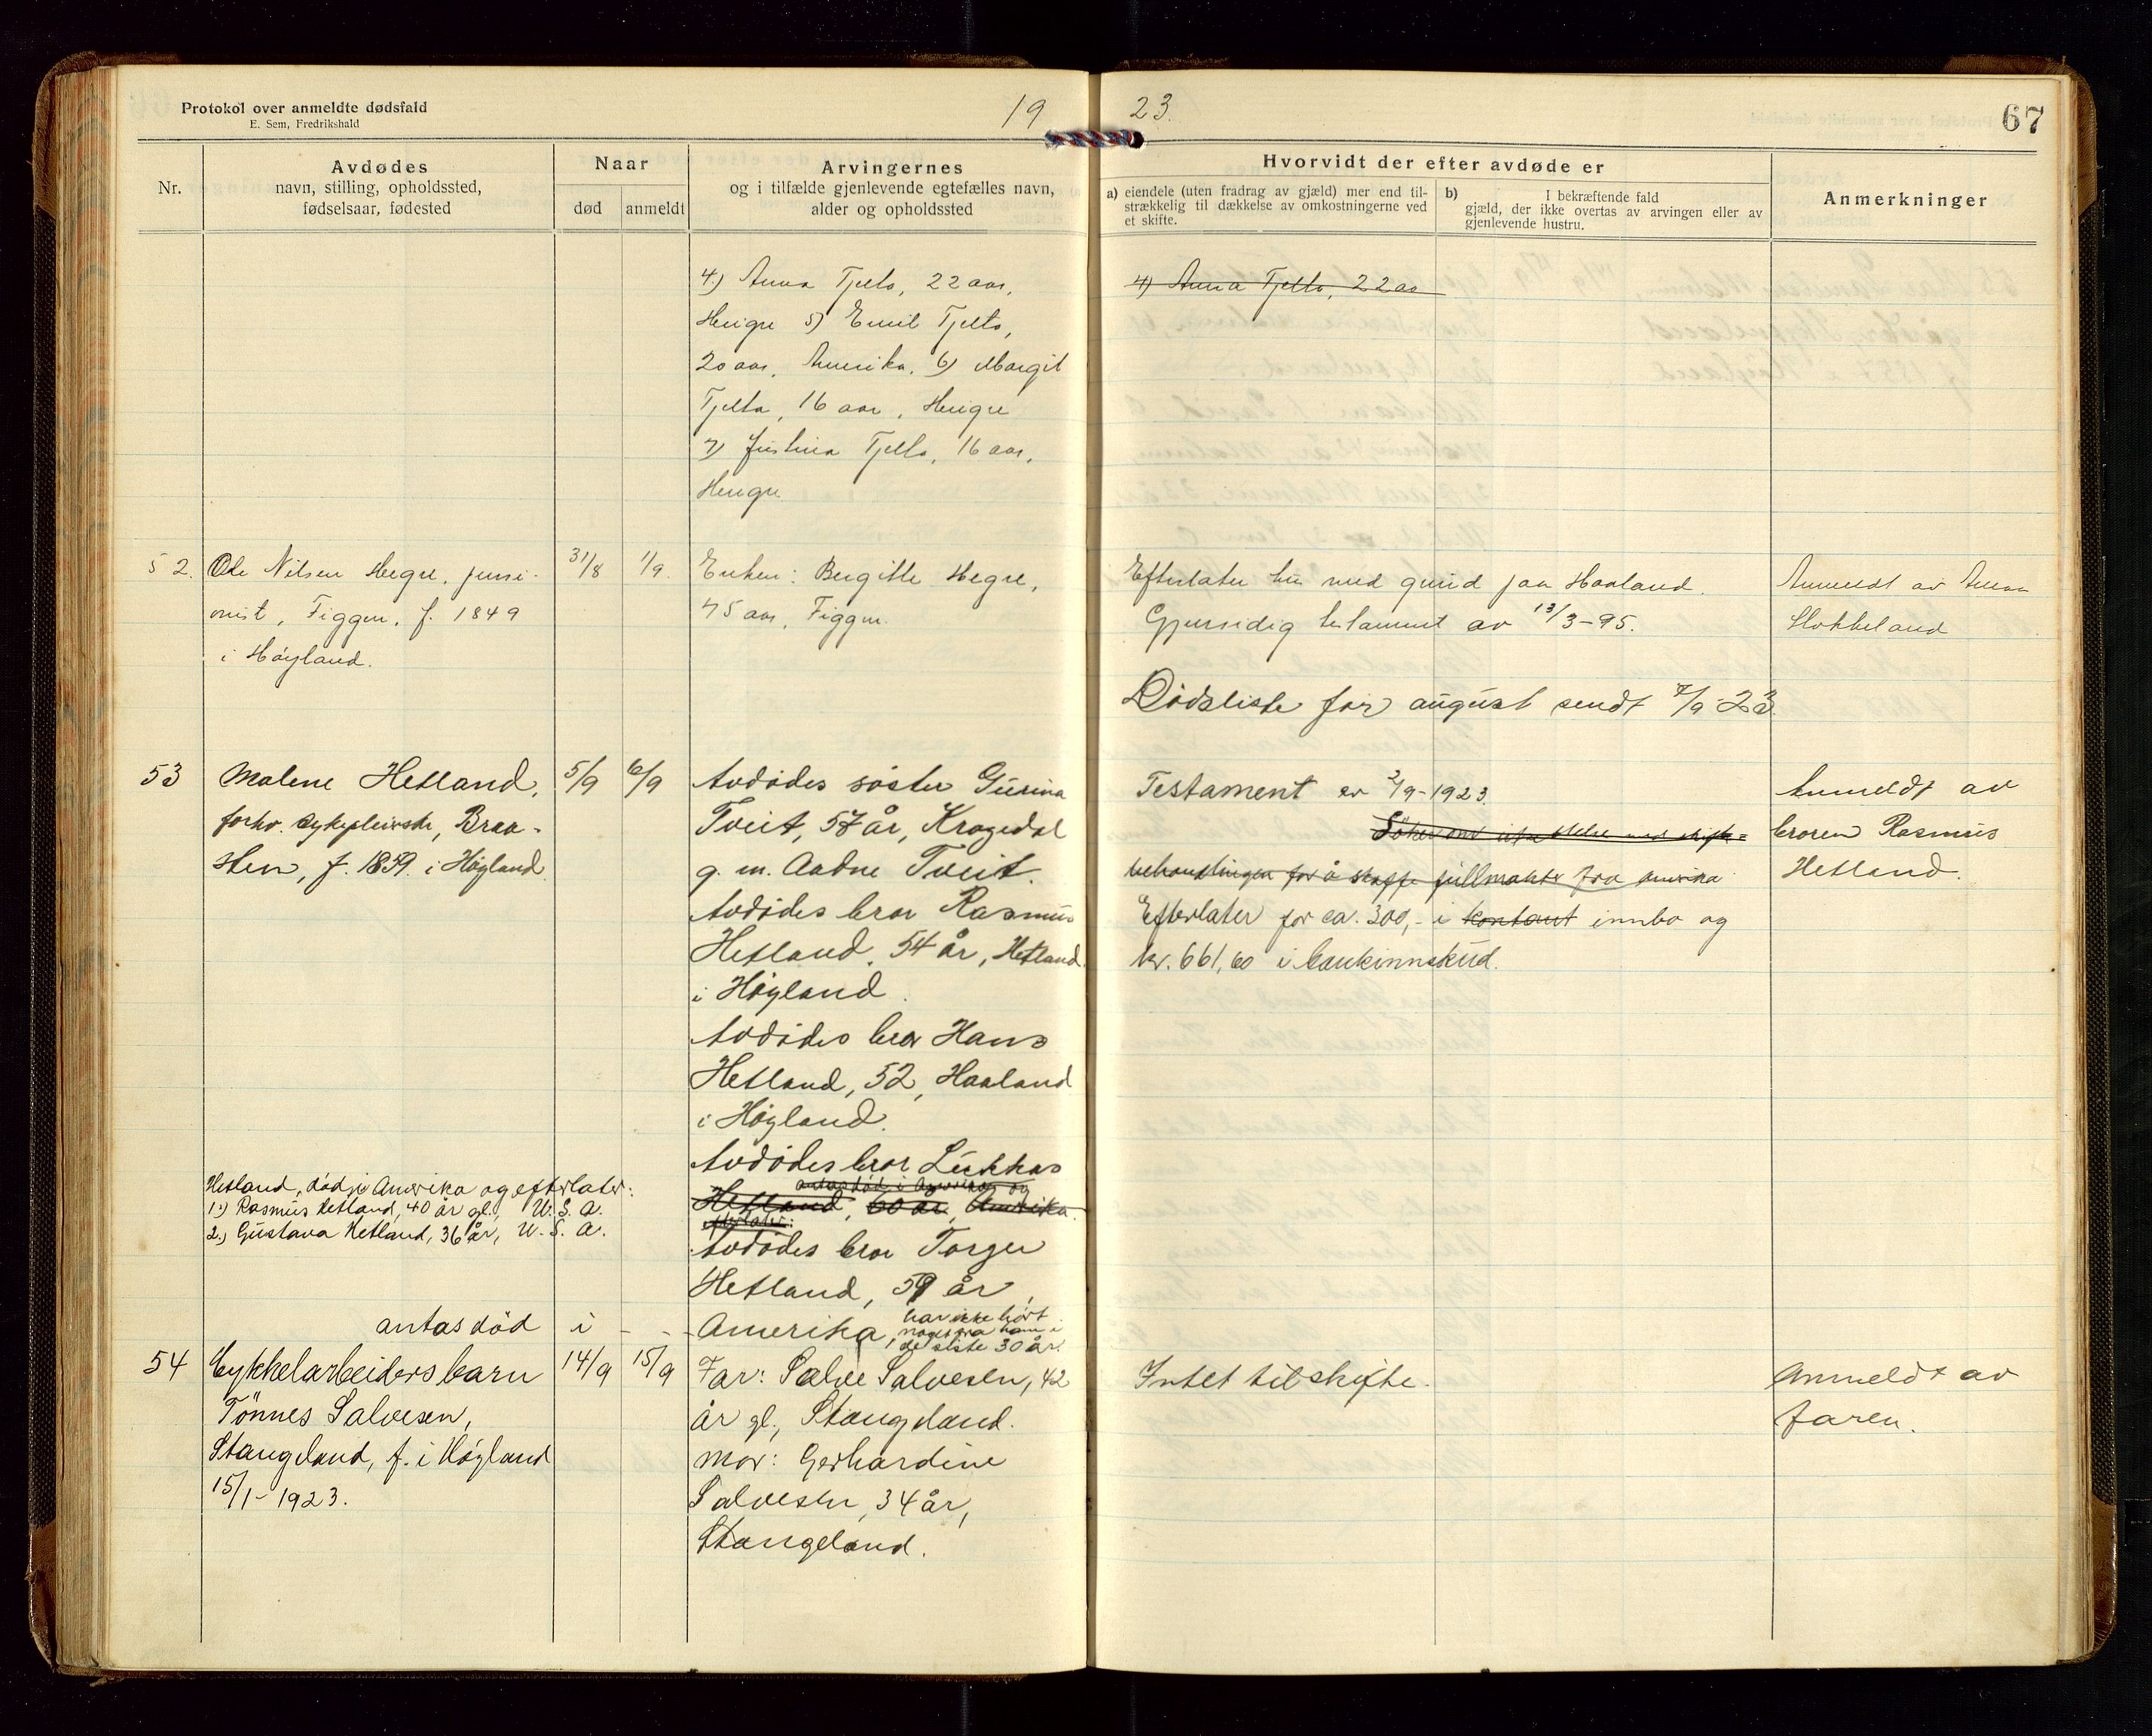 Protokol over anmeldte dødsfald
E. Sem, Fredrikshald
19
23.
67
Nr.
Avdødes
navn, stilling, opholdssted,
fødselsaar, fødested
Naar
død
anmeldt
Arvingernes
og i tilfælde gjenlevende egtefælles navn,
alder og opholdssted
Hvorvidt der efter avdøde er
a) eiendele (uten fradrag av gjæld) mer end til-
strækkelig til dækkelse av omkostningerne ved
et skifte.
b) I bekræftende fald
gjæld, der ikke overtas av arvingen eller av
gjenlevende hustru.
Anmerkninger
4.) Anna Tjelta, 22 aar,
Heigre 5) Emil Tjelta,
20 aar, Amerika. 6) Margit
Tjelta, 16 aar, Heigre
7) Justina Tjelta, 16 aar,
Heigre
4) Anna Tjelta, 22 aa
52. Ole Nilsen Hegre, pensi-
onist, Figgen, f. 1849
i Høyland.
31/8
1/9.
Enken: Bergitte Hegre,
75 aar, Figgen.
Efterlater hus med grund paa Haaland.
Gjensidig testament av 13/3-95.
Anmeldt av
Stokkeland
Dødsliste for august sendt 7/9-23.
53 Malene Hetland,
forhv. sykepleierske, Braa-
sten, f. 1859. i Høyland.
5/9
6/9
Avdødes søster Gurina
Tveit, 57 år, Kragedal
g. m. Aadne Tveit.
Avdødes bror Rasmus
Hetland, 54 år, Hetland
i Høyland.
Avdødes bror Hans
Hetland, 52, Haaland
i Høyland.
Avdødes bror Lukkas
antas død i Amerika og
Hetland, 60 år, Amerika.
efterlater:
Hetland, død i Amerika og efterlater:
1.) Rasmus Hetland, 40 år gl., U.S.A.
2.) Gustava Hetland, 36 år, U.S.A.
Avdødes bror Torger
Hetland, 59 år,
Amerika, har ikke hørt
noget fra ham i
de siste 30 år.
antas død i - - -
Testament er 2/9-1923.
Søker om utsettelse med skifte-
behandlingen for å skaffe fullmakter fra Amerika
Efterlater for ca. 300,- i kontant innbo og
kr. 661,60 i bankinnskud.
Anmeldt av
broren Rasmus
Hetland.
54 Cykkelarbeiders barn
Tönnes Salvesen,
Stangeland, f. i Høyland
15/1-1923.
14/9
15/9
Far: Salve Salvesen, 42
år gl., Stangeland.
Mor: Gerhardine
Salvesen, 34 år,
Stangeland.
Intet til skifte.
Anmeldt av
faren.